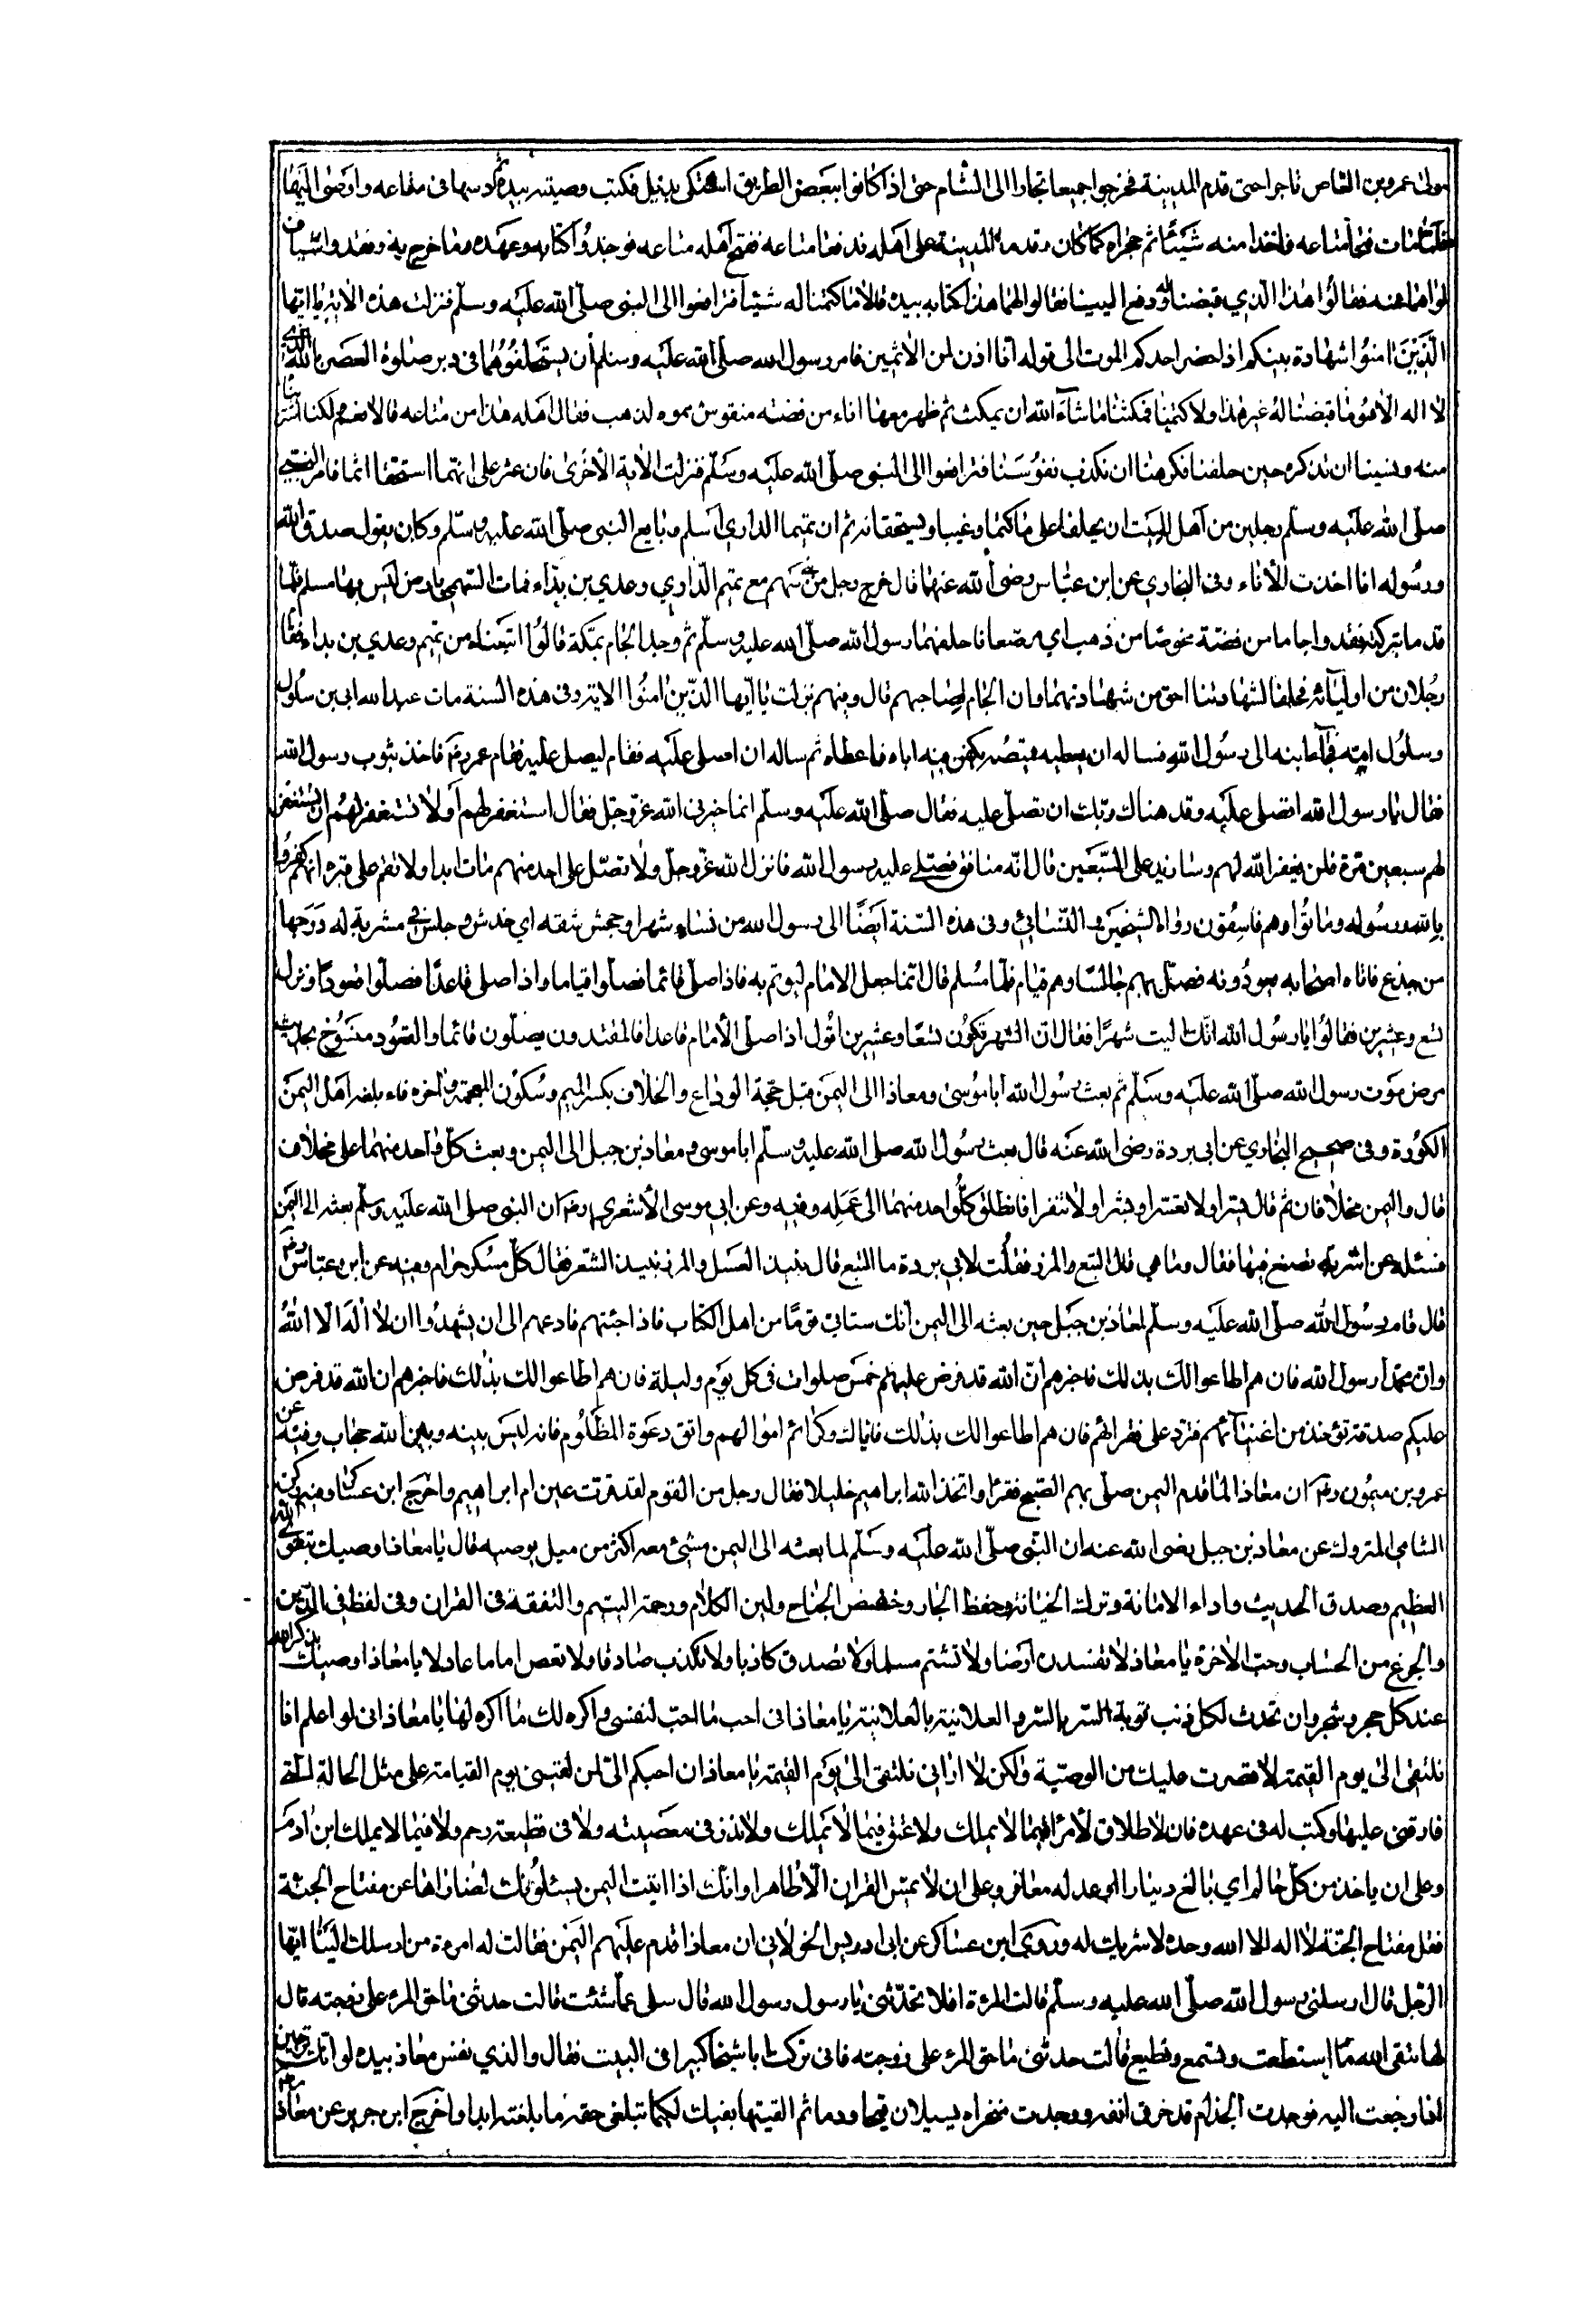 مولى عمرو بن العاص تاجرا حتى قدم المدينة فخرجوا جميعا تجارا الى الشام حتى اذا كانوا ببعض الطريق اشتكى بديل فكتب وصيته بيده ثم دسها فى متاعه واوصى اليهما
فلما مات فتحا متاعه فاخذا منه شيئا ثم حجراه كما كان وقدما المدينة على اهله فدفعا متاعه ففتح اهله متاعه فوجدوا كتابه وعهده وما خرج به وفقدوا شيئا
فسالوهما عنه فقالوا هذا الذي قبضنا له ودفع الينا فقالوا لهما هذا كتابه بيده قالا ما كتمنا له شيئا فترافعوا الى النبى صلى الله عليه وسلم فنزلت هذه الاية يا ايها
الذين امنوا شهادة بينكم اذا حضر احدكم الموت الى قوله انا اذن لمن الاثمين فامر رسول الله صلى الله عليه وسلم ان يستحلفوهما فى دبر صلوة العصر بالله الذى
لا اله الا هو ما قبضنا له غير هذا ولا كتمنا فمكثنا ما شاء الله ان يمكث ثم ظهر معهما اناء من فضته منقوش مموه لذهب فقال اهله هذا من متاعه قالا نعم لكنا اشترينا
منه ونسينا ان نذكره حين حلفنا فكرهنا ان نكذب نفوسنا فترافعوا الى النبى صلى الله عليه وسلم فنزلت الاية الاخرى فان عثر على انهما استحقا اثما فامر النبى
صلى الله عليه وسلم رجلين من اهل الميت ان يحلفا على ما كتما وغيبا ويستحقانه ثم ان تميما الداري اسلم وبايع النبى صلى الله عليه وسلم وكان يقول صدق الله
ورسوله انا اخذت الاناء وفى البخاري عن ابن عباس رضى الله عنهما قال خرج رجل من بنى سهم مع تميم الداري وعدي بن بداء فمات السهمى بارض ليس بها مسلم فلما
قدما بتركته فقدوا جاما من فضة مخوصا من ذهب اي مرصعا فاحلفهما رسول الله صلى الله عليه وسلم ثم وجد الجام بمكة قالوا ابتعناه من تميم وعدي بن بداء فقام
رجلان من اوليائه فحلفا لشهادتنا احق من شهادتهما وان الجام لصاحبهم قال وفيهم نزلت يا ايها الذين امنوا الاية وفى هذه السنة مات عبد الله ابى بن سلول
وسلول امه فجاء ابنه الى رسول الله فساله ان يعطيه قميصه يكفن فيه اباه فاعطاه ثم ساله ان يصلى عليه فقام ليصل عليه فقام عمر رضه فاخذ بثوب رسول الله
فقال يا رسول الله اتصلى عليه وقد نهاك ربك ان تصلى عليه فقال صلى الله عليه وسلم انما خيرنى الله عز وجل فقال استغفر لهم او لا تستغفر لهم ان تستغفر
لهم سبعين مرة فلن يغفر الله لهم وسازيد على السبعين قال انه منافق فصلى عليه رسول الله فانزل الله عز وجل ولا تصل على احد منهم مات ابدا ولا تقم على قبره انهم كفروا
بالله ورسوله وماتوا وهم فاسقون رواه الشيخين و النسائي وفى هذه السنة ايضا الى رسول الله من نساءه شهرا وجحش شقه اي خدش وجلس فى مشربة له درجها
من جذع فاتاه اصحابه يعودونه فصلى بهم جالسا وهم قيام فلما سلم قال انما جعل الامام ليوتم به فاذا صلى قائما فصلوا قياما واذا صلى قاعدا فصلوا قعودا ونزل
تسع وعشرين فقالوا يا رسول الله انك اليت شهرا فقال ان الشهر يكون تسعا وعشرين اقول اذا صلى الامام قاعدا فالمقتدون يصلون قائما والقعود منسوخ بحديث
مرض موت رسول الله صلى الله عليه وسلم ثم بعث رسول الله ابا موسى ومعاذا الى اليمن قبل حجة الوداع والمخلاف بكسر الميم وسكون المعجمة واخره فاء بلغة اهل اليمن
الكورة وفى صحيح البخاري عن ابى بردة رضى الله عنه قال بعث رسول الله صلى الله عليه وسلم ابا موسى ومعاذ بن جبل الى اليمن وبعث كل واحد منهما على مخلاف
قال واليمن مخلافان ثم قال يسرا ولا تعسرا وبشرا ولا تنفرا فانطلق كل واحد منهما الى عمله وفيه وعن ابى موسى الاشعري رضه ان النبى صلى الله عليه وسلم بعثه الى اليمن
فسئله عن اشربة تصنع فيها فقال وما هي قال البتع والمزر فقلت لابي بردة ما البتع قال نبيذ العسل والمزر نبيذ الشعر فقال كل مسكر حرام وفيه عن ابن عباس رضه
قال قام رسول الله صلى الله عليه وسلم لمعاذ بن جبل حين بعثه الى اليمن انك ستاتى قوما من اهل الكتاب فاذا جئتهم فادعهم الى ان يشهدوا ان لا اله الا الله
وان محمدا رسول الله فان هم اطاعوا لك بذلك فاخبرهم ان الله قد فرض عليهم خمس صلوات فى كل يوم وليلة فان هم اطاعوا لك بذلك فاخبرهم ان الله قد فرض
عليكم صدقة تؤخذ من اغنيائهم فترد على فقرائهم فان هم اطاعوا لك بذلك فاياك وكرائم اموالهم واتق دعوة المظلوم فانه ليس بينه وبين الله حجاب وفيه عن
عمرو بن ميمون رضه ان معاذا لما قدم اليمن صلى بهم الصبح فقرا واتخذ الله ابراهيم خليلا فقال رجل من القوم لقد قرت عين ام ابراهيم واخرج ابن عساكر وفيه ركن
الشامي المتروك عن معاذ بن جبل رضى الله عنه ان النبى صلى الله عليه وسلم لما بعثه الى اليمن مشى معه اكثر من ميل يوصيه قال يا معاذ اوصيك بتقوى الله
العظيم وصدق الحديث واداء الامانة وترك الخيانة وحفظ الجار وخفض الجناح ولين الكلام ورحمة اليتيم والتفقه فى القران وفى لفظ فى الدين
والجزع من الحساب وحب الاخرة يا معاذ لا تفسدن ارضا ولا تشتم مسلما ولا تصدق كاذبا ولا تكذب صادقا ولا تعص اماما عادلا يا معاذ اوصيك بذكر الله
عند كل حجر وشجر وان تحدث لكل ذنب توبة السر بالسر والعلانية بالعلانية يا معاذ انى احب ما احب لنفسى واكره لك ما اكره لها يا معاذ انى لو اعلم انا
نلتقى الى يوم القيمة لاقصرت عليك من الوصية ولكن لا ارانى نلتقى الى يوم القيمة يا معاذ ان احبكم الى لمن لقينى يوم القيامة على مثل الحالة التى
فارقنى عليها وكتب له فى عهده فان لا طلاق لامرا فيما لا يملك ولا عتق فيما لا يملك ولا نذر فى معصيته ولا فى قطيعة رحم ولا فيما لا يملك ابن ادم
وعلى ان ياخذ من كل حالم اي بالغ دينارا او عدله معافر وعلى ان لا يمس القران الا طاهرا وانك اذا اتيت اليمن يسئلونك نصاراها عن مفتاح الجنة
فقل مفتاح الجنة لا اله الا الله وحده لا شريك له وروى ابن عساكر عن ابى ادريس الخولانى ان معاذا قدم عليهم اليمن فقالت له امرءة من ارسلك الينا ايها
الرجل قال ارسلنى رسول الله صلى الله عليه وسلم قالت المرءة افلا تحدثنى يا رسول رسول الله قال سلى عما شئت قالت حدثنى ما حق المرء على زوجته قال
لها تتقى الله ما استطعت وتسمع وتطيع قالت حدثنى ما حق المرء على زوجته فانى تركت ابا شيخا كبيرا فى البيت فقال والذي نفس معاذ بيده لو انك ترجعين
اذا رجعت اليه فوجدت الجذام قد خرق انفه ووجدت منخراه يسيلان قيحا ودما ثم القيتها بفيك لكيما تبلغى حقه ما بلغته ابدا واخرج ابن جرير عن معاذ رضه